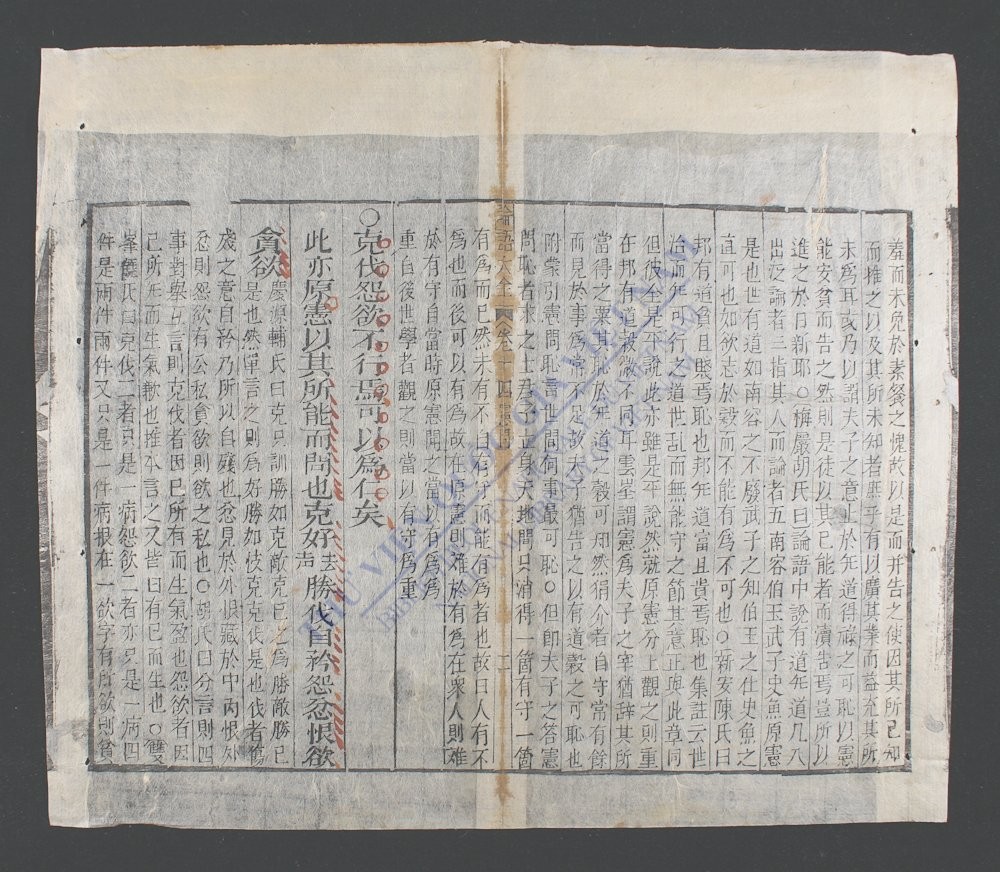 羞而未免於素餐之愧故以是而并告之使因其所已知
而推之以及其所未知者庶乎有以廣其業而益充其所
未為耳或乃以謂夫子之意止於无道得祿之可恥以憲
能安貧而告之然則是徒以其已能者而瀆告焉豈所以
進之於日新耶○嚴胡氏曰論語中說有道无道凡八
出泛論者三指其人而論者五南容伯玉武子史魚原憲
是也世有道如南容之不廢武子之知伯玉之仕史魚之
直可也也如欲志於穀而不能有為不可也○新安陳氏曰
邦有道貧且賤焉恥也邦无道富且貴焉恥也集註云世
治而无可行之道世乱而無能守之節其意正與此章同
但彼全是平說此亦雖是平說然就原憲分上觀之則重
在邦有道穀微不同耳雲峯謂憲為夫子之宰猶辭其所
當得之粟其恥於无道之穀可知然狷介者自守常有餘
而見於事為常不足故夫子猶告之以有道穀之可恥也
附蒙引憲問恥言世間何事最可恥○但即夫子之答憲
問恥者求之士君子立身天地間只消得一箇有守一箇
論語大全 卷十四 憲問 二
有為而已然未有不自有守而能有為者也故曰人有不
為也而後可以有為故在原憲則难於有為在衆人則难
於有守自當時原憲聞之當以有為為
重自後世學者觀之則當以有守為重
○克伐怨欲不行焉可以為仁矣
此亦原憲以其所能而問也克好去声勝伐自矜怨忿恨欲
貪欲慶源輔氏曰克只訓勝如克敵克己之為勝敵勝己
是也然單言之則為好勝如忮克克伐是也伐者傷
殘之意自矜乃所以自殘也忿見於外恨藏於中內恨外
忿則怨欲有公私貪欲則欲之私也○胡氏曰分言則四
事對舉互言則克伐者因己所有而生氣盈也怨欲者因
己所无而生氣歉也推本言之又皆曰有己而生也○雙
峯饒氏曰克伐二者只是一病怨欲二者亦只是一病四
件是兩件兩件又只是一件病根在一欲字有所欲則貪
THƯ VIỆN QUỐC GIA VIỆT NAM